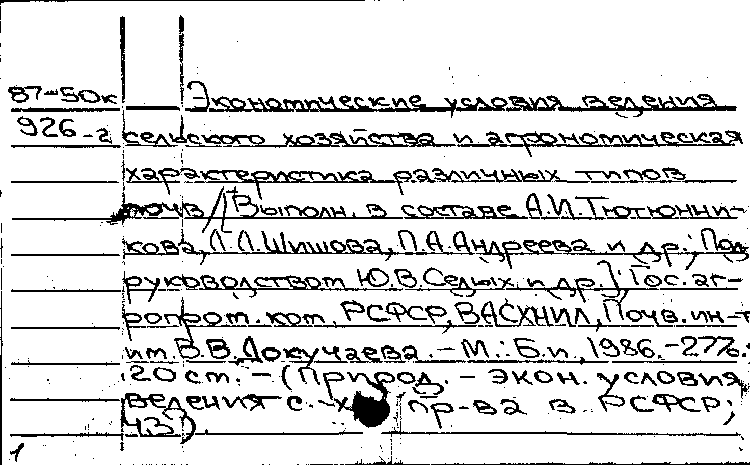 87-50к Экономические условия ведения
926-2 сельского хозяйства и агрономическая
характеристика различных типов
почв / [Выполн. в составе А.И.Тютюнни-
кова, Л.Л.Шишова, П.А.Андреева и др.; Под
руководством Ю.В.Седых и др.]; Гос. аг-
ропром. ком. РСФСР, ВАСХНИЛ, Почв. ин-т
им. В.В.Докучаева. - М.: Б.и, 1986. - 277с.;
20 см. - (Природ. - экон. условия
ведения с.-х. пр-ва в РСФСР;
Ч.3).
1